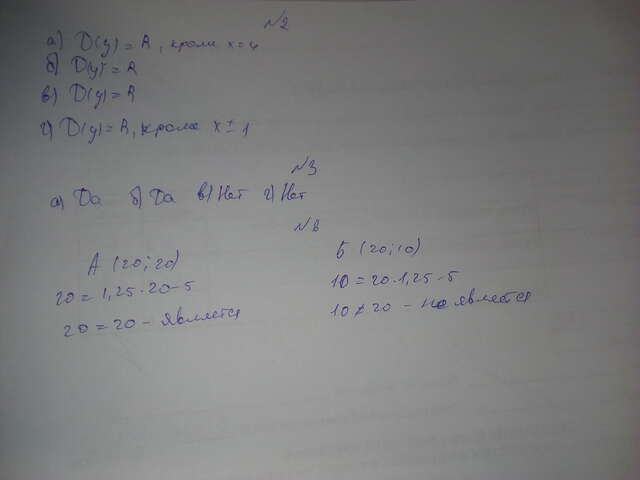 №2
а) D(y) = R, кроме x=4
б) D(y) = R
в) D(y) = R
г) D(y) = R, кроме x ± 1
№3
а) Да б) Да в) Нет г) Нет
№6
А (20; 20)
20 = 1,25·20-5
20 = 20 - является
Б (20; 10)
10 = 20·1,25-5
10 ≠ 20 - не является